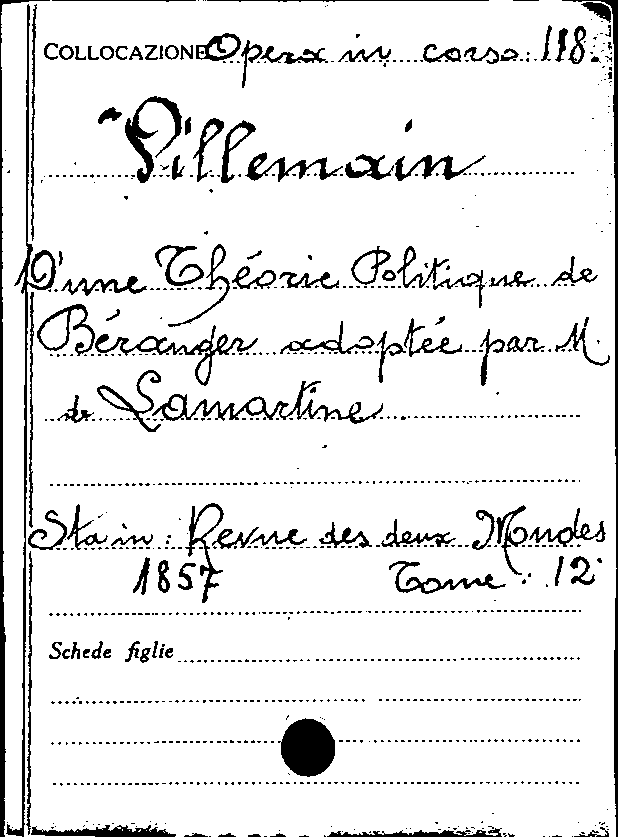 COLLOCAZIONE Opera in corso. 118.
Villemain
D'une Théorie Politique de
Béranger adoptée par M.
de Lamartine
Sta in: Revue des deux Mondes
1857 Tome: 12
Schede figlie